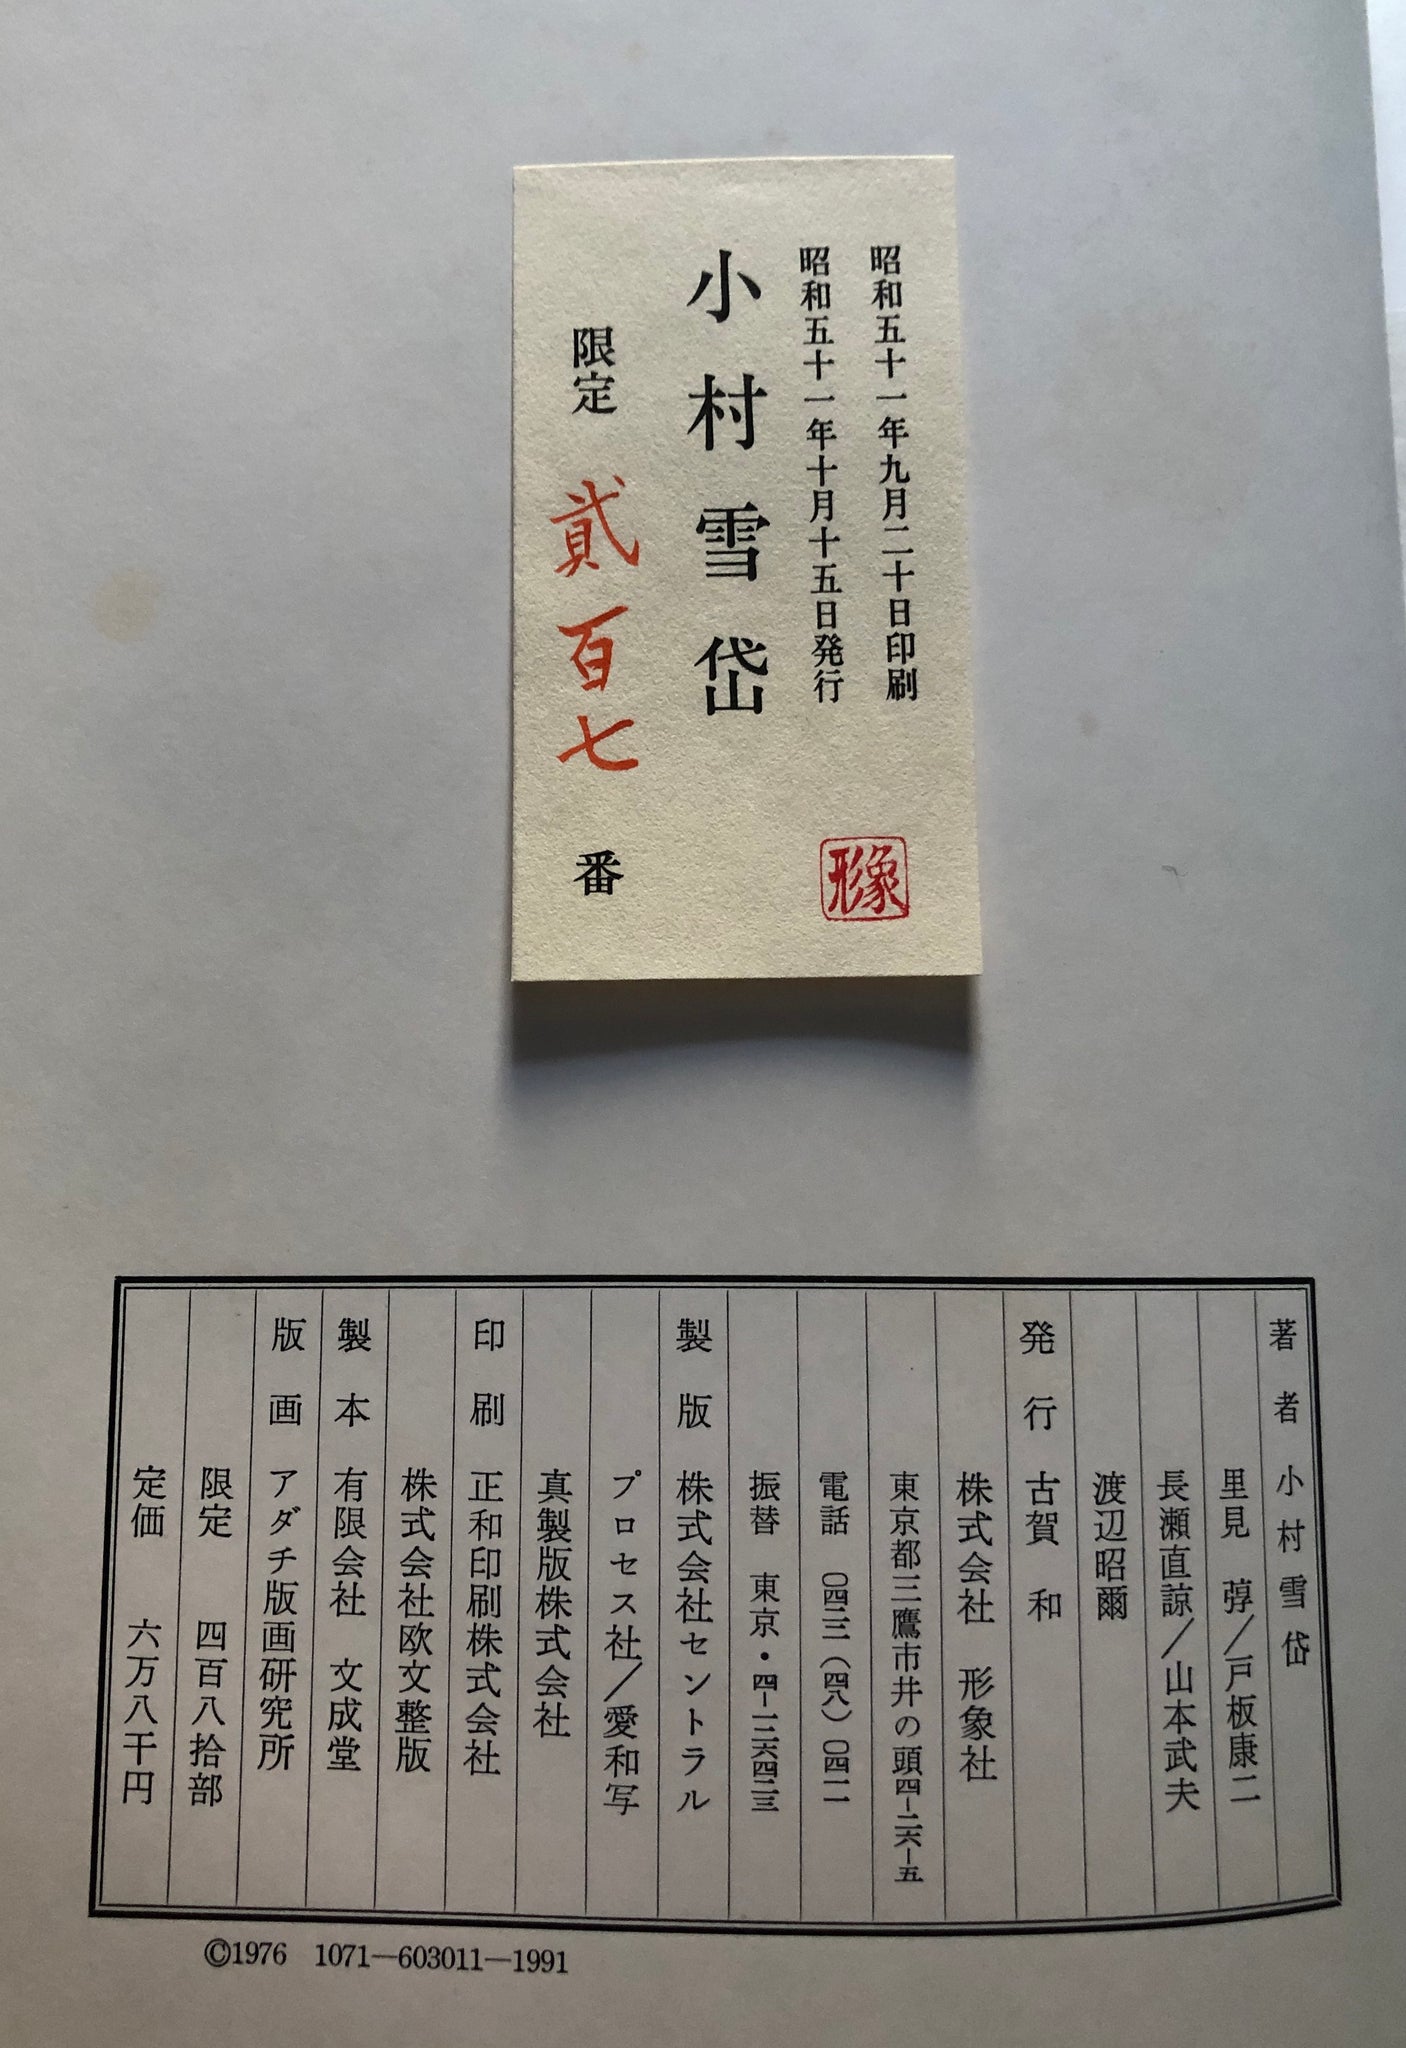 昭和五十一年九月二十日印刷
昭和五十一年十月十五日発行
形象
小村雪岱
限定 貳百七 番
著者 小村雪岱
里見 弴/戸板康二
長瀬直諒/山本武夫
渡辺昭爾
発行 古賀 和
株式会社 形象社
東京都三鷹市井の頭四−二六−五
電話 〇四二二(四八)〇四二一
振替 東京・四−一二六四二三
製版 株式会社セントラル
プロセス社/愛和写
真製版株式会社
印刷 正和印刷株式会社
株式会社欧文整版
製本 有限会社 文成堂
版画 アダチ版画研究所
限定 四百八拾部
定価 六万八千円
©1976 1071—603011—1991